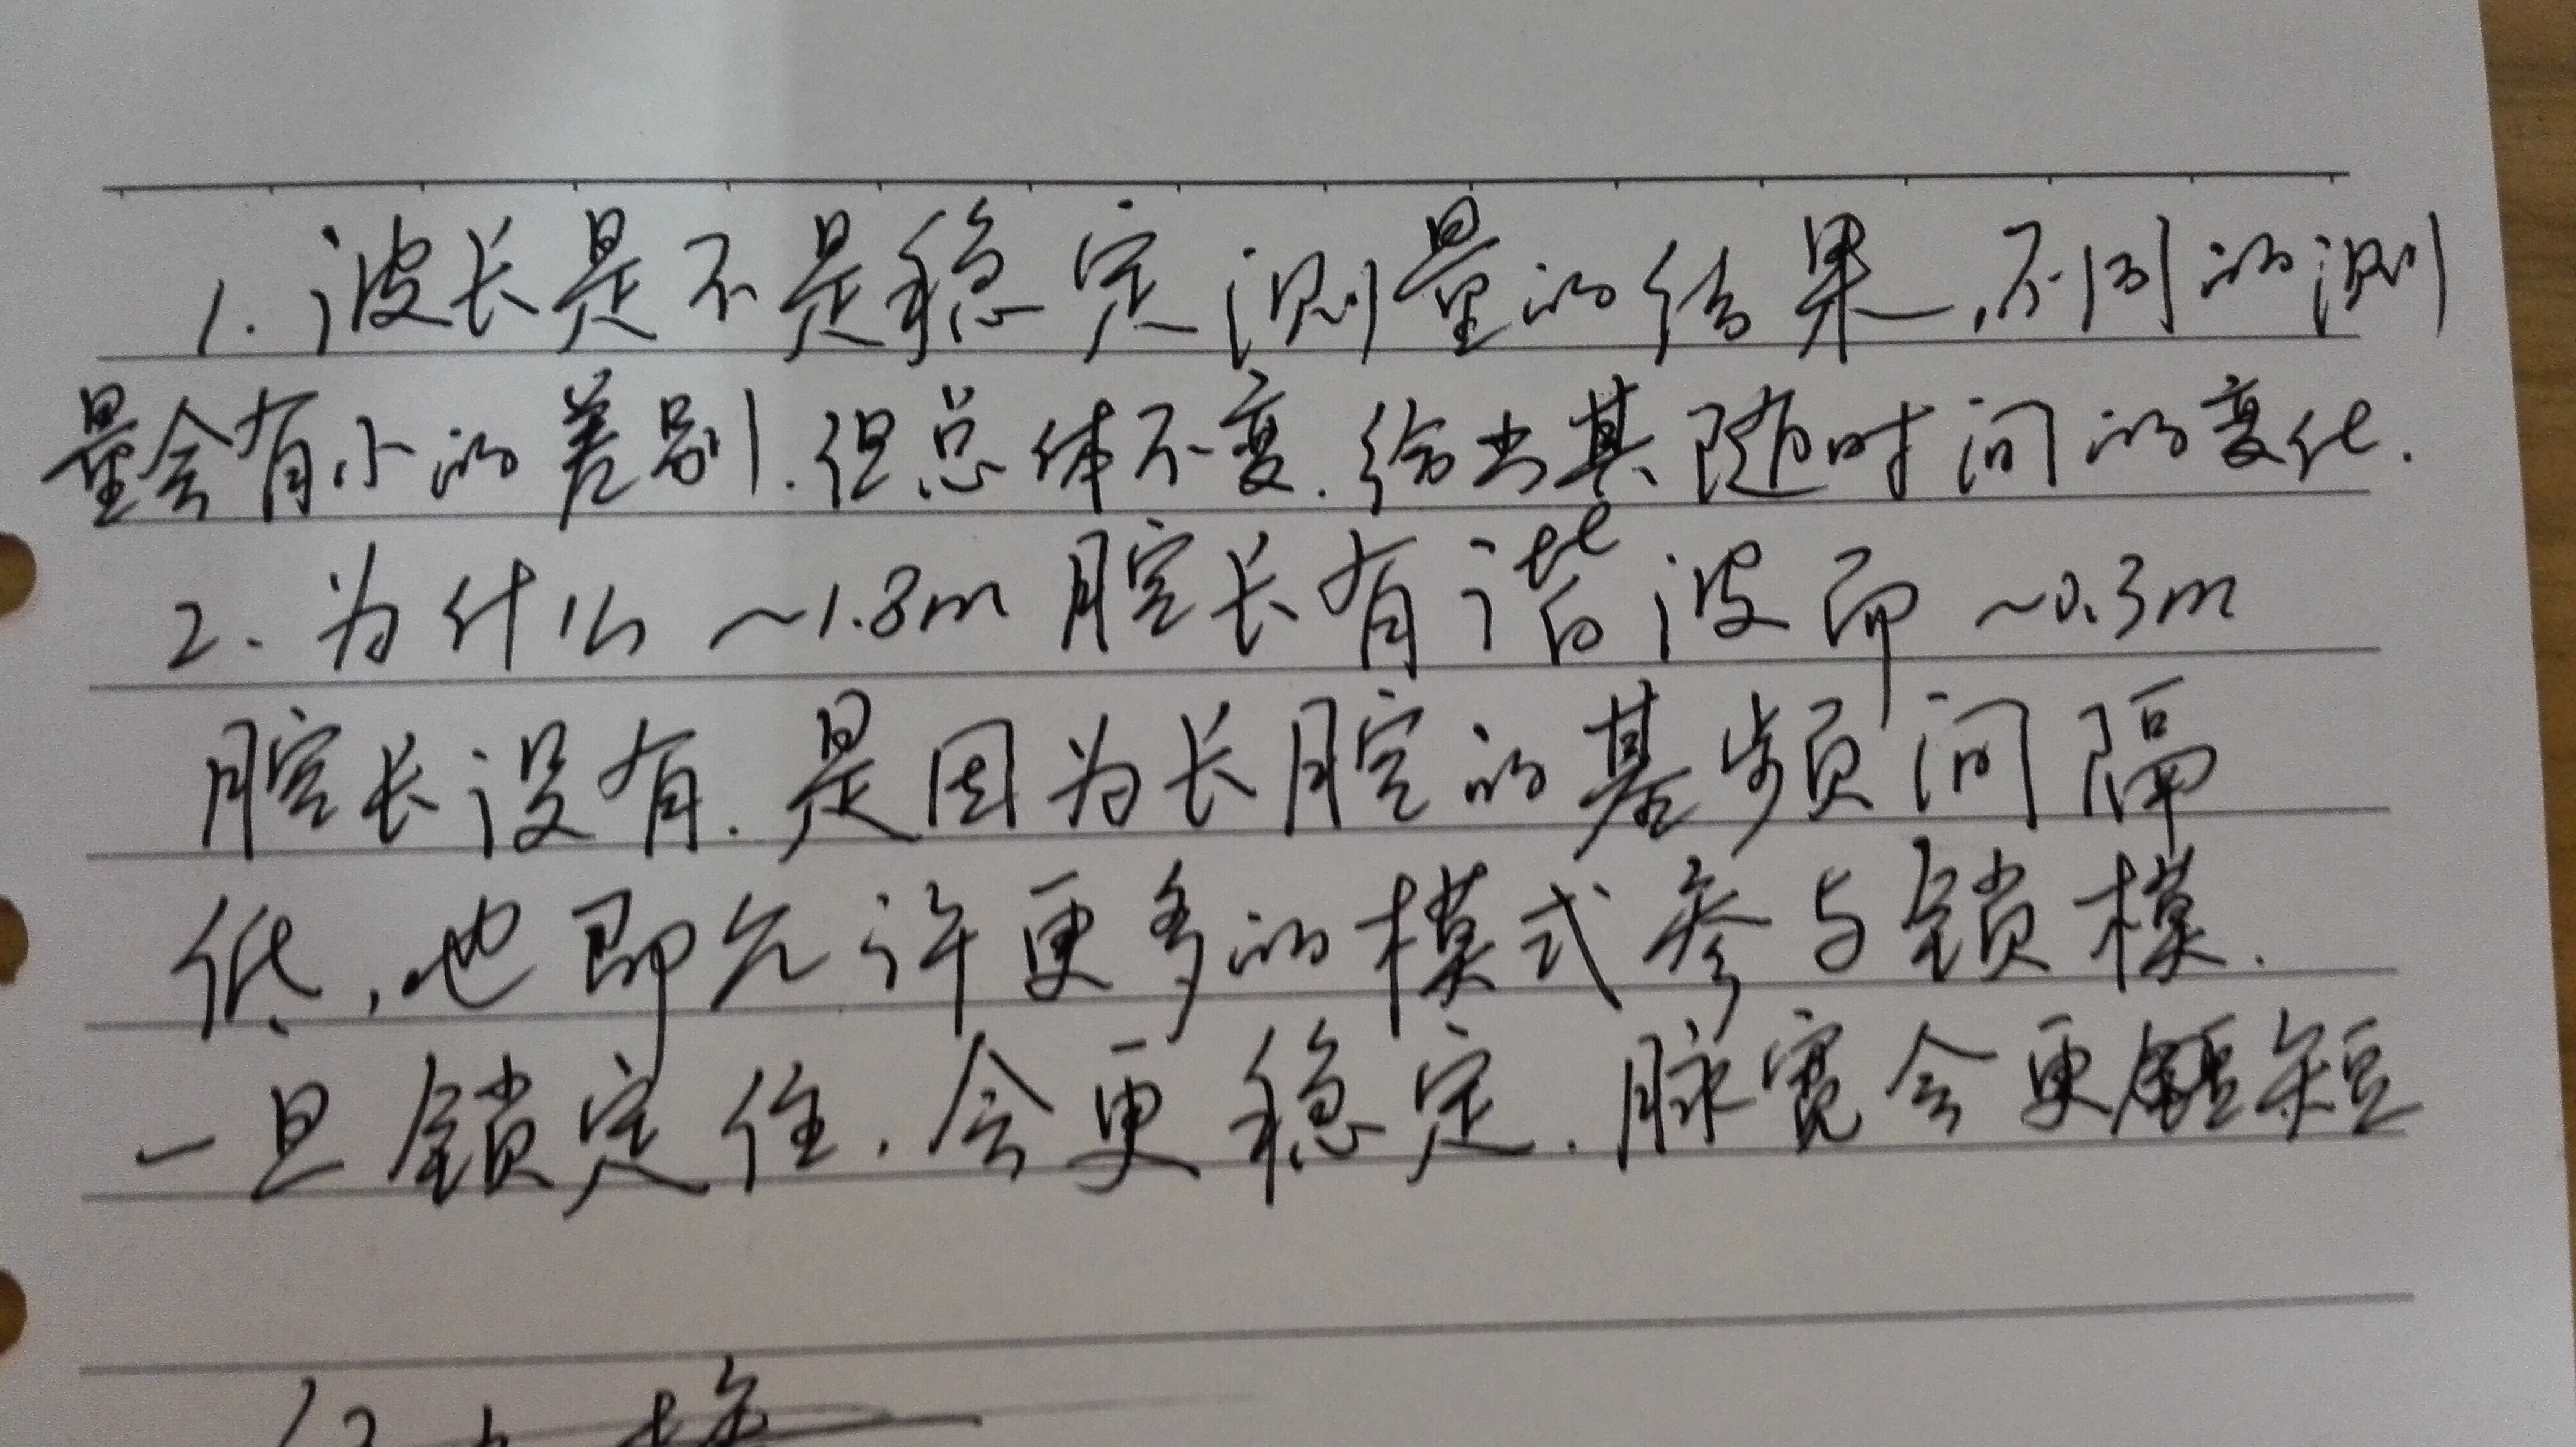 1. 波长是不是稳定测量的结果,不同的测
量会有小的差别.但总体不变.给出其随时间的变化.
2. 为什么 ~1.8m 腔长有谐波而 ~0.3m
腔长没有.是因为长腔的基频间隔
低,也即允许更多的模式参与锁模.
一旦锁定住.会更稳定.脉宽会更短